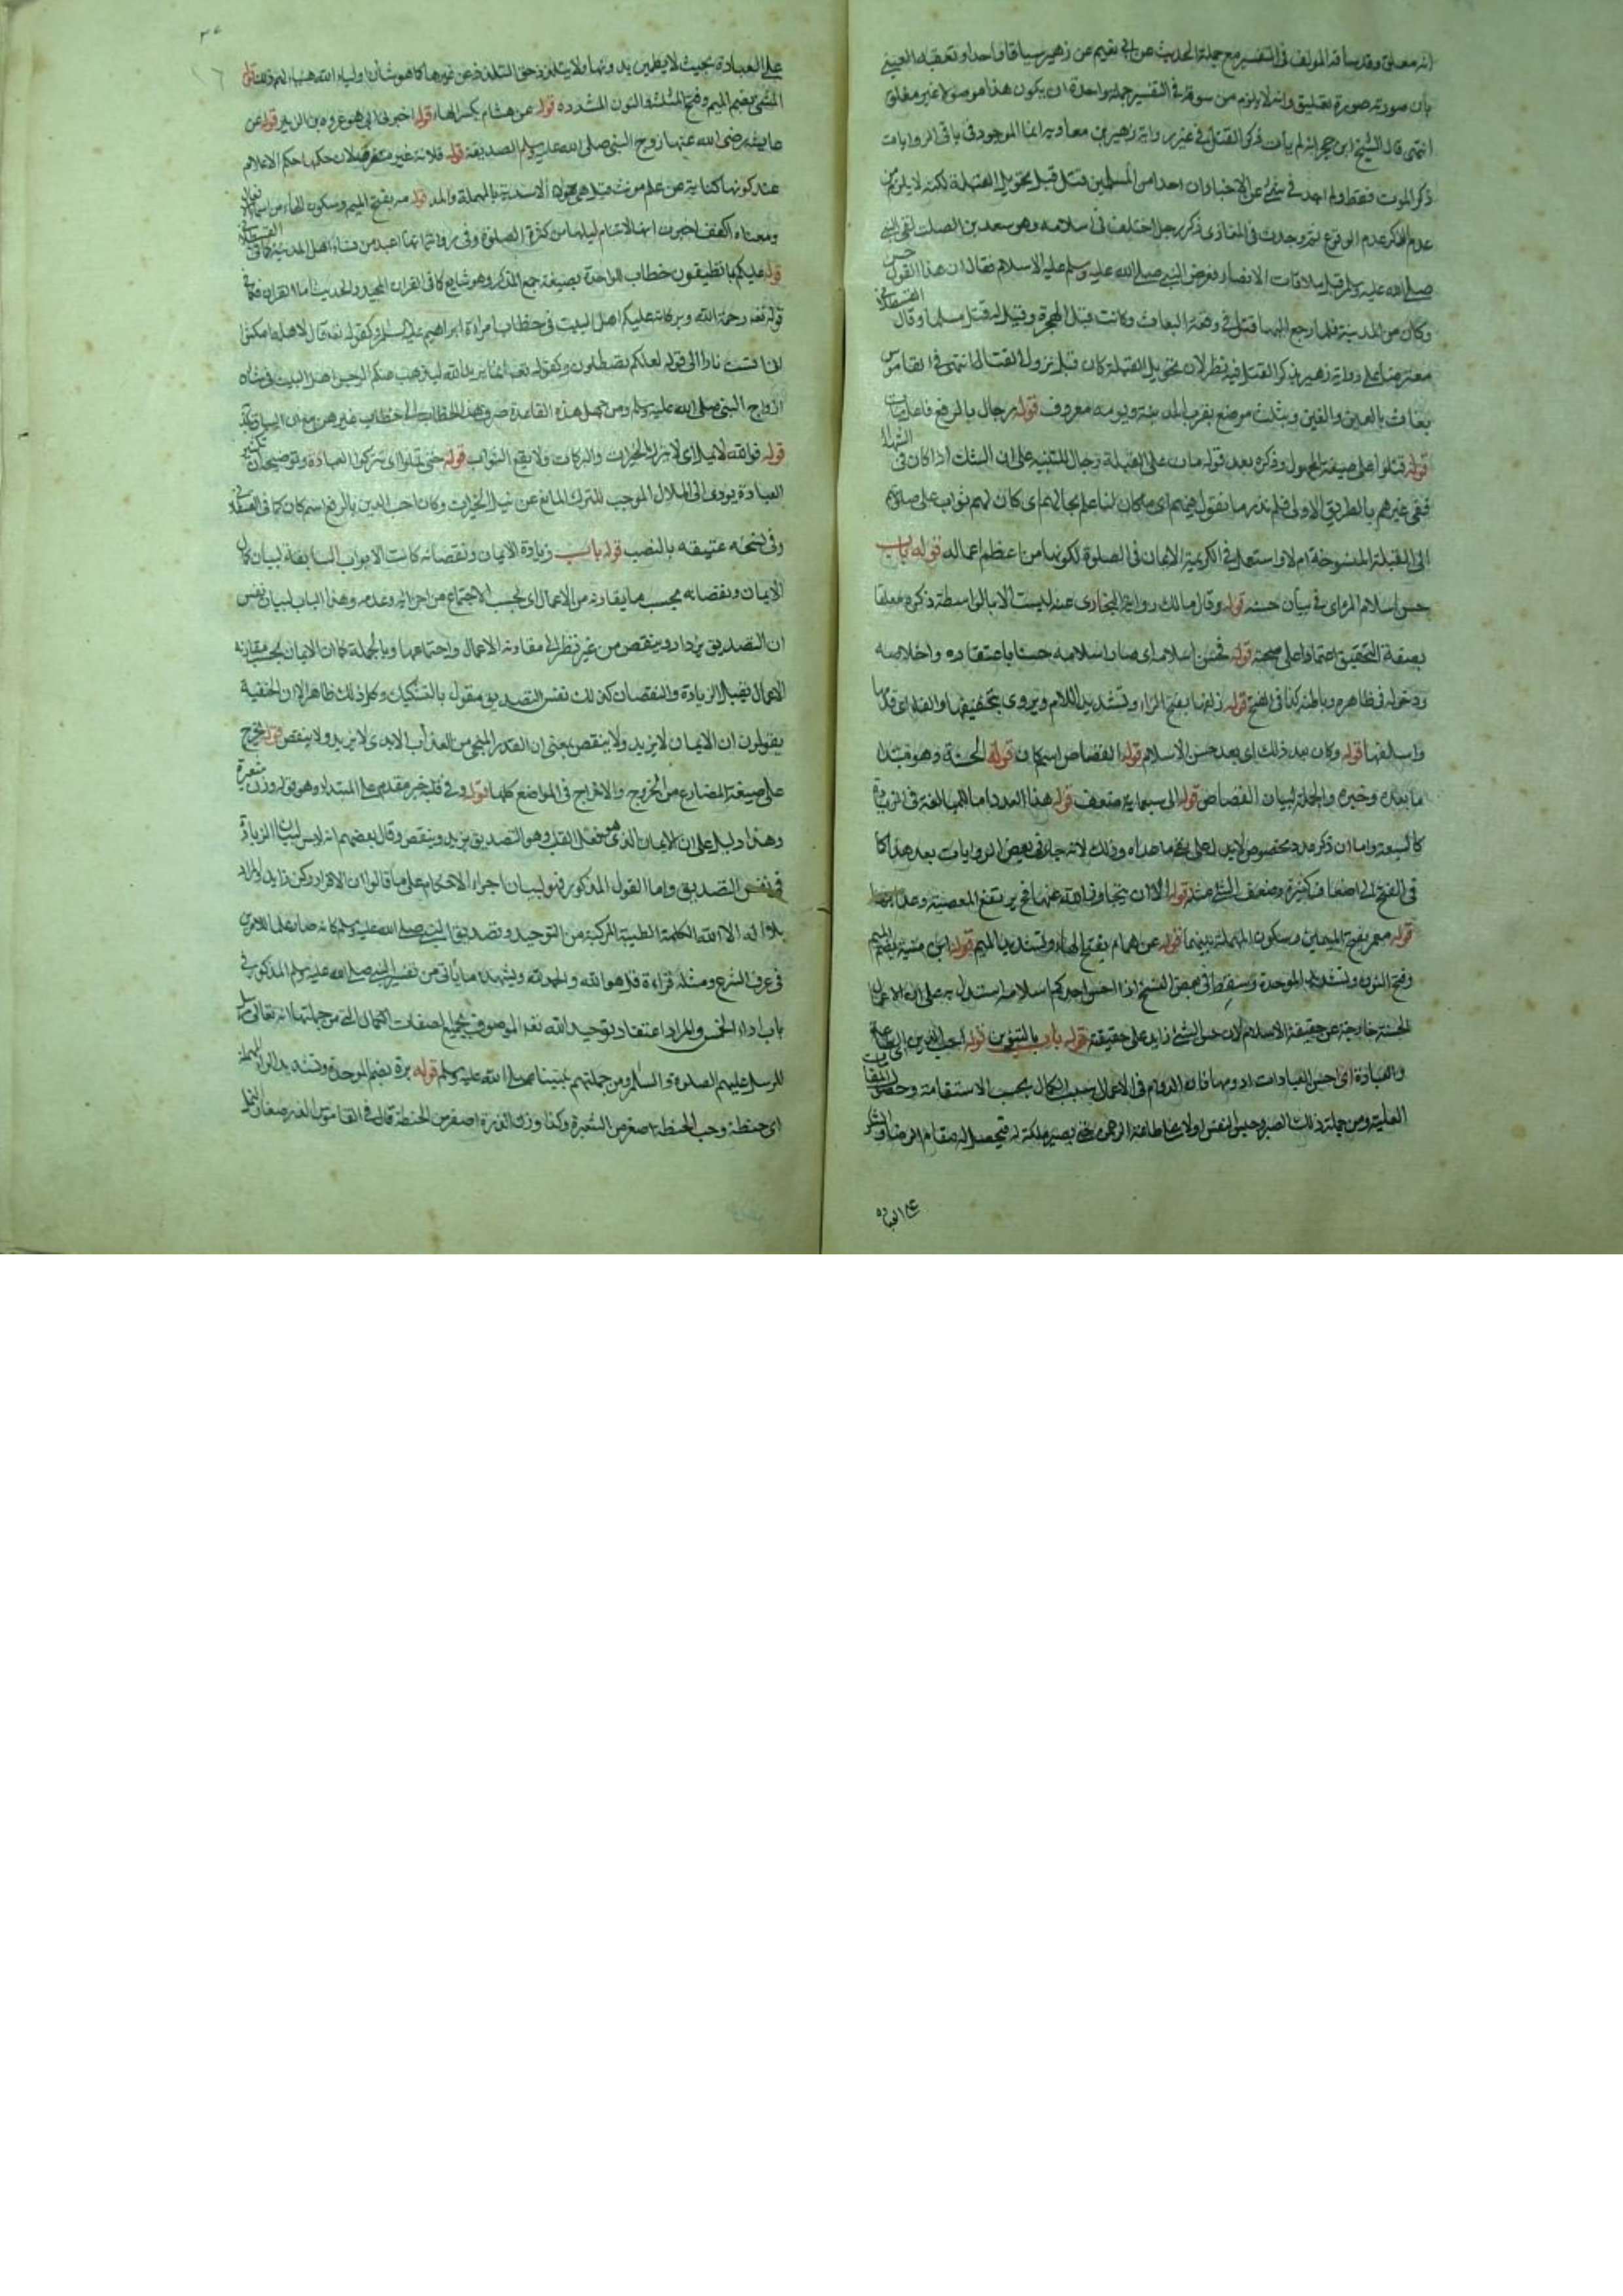 انه معلق وقد ساقه المولف في التفسير مع جملة الحديث عن ابي نعيم عن زهير سياقا واحدا وتعقبه العيني
بان صورته صورة تعليق وانه لا يلزم من سوقه في التفسير جملة واحدة ان يكون هذا موصولا غير معلق
انتهى قال الشيخ ابن حجر انه لم يأت ذكر القتل في غير رواية زهير بن معاوية انما الموجود في باقي الروايات
ذكر الموت فقط ولم اجد في شئ من الاخبار ان احدا من المسلمين قتل قبل تحويل القبلة لكنه لا يلزم من
عدم الذكر عدم الوقوع ثم وجدت في المغازي ذكر رجل اختلف في اسلامه وهو سعد بن الصلت لقي النبي
صلى الله عليه وسلم قبل ملاقات الانصار فعرض النبي صلى الله عليه وسلم عليه الاسلام فقال ان هذا القول حسن
وكان من المدينة فلما رجع اليها قتل في وقعة البعاث وكانت قبل الهجرة وقيل انه قتل مسلما وقال القسطلاني
معترضا على رواية زهير ذكر القتل فيه نظر لان تحويل القبلة كان قبل نزول القتال انتهى في القاموس
بعاث بالعين والغين ويثلث موضع بقرب المدينة ويومه معروف قوله رجال بالرفع فاعل مات
قوله قتلوا على صيغة المجهول وذكره بعد قوله مات على القبلة رجال للتنبيه على ان الشك اذا كان في الشهداء
ففي غيرهم بالطريق الاولى فلم ندر ما نقول فيهم اي ما كان لنا علم بحالهم اي كان لهم ثواب على صلاتهم
الى القبلة المنسوخة ام لا واستعمل في الكريمة الايمان في الصلوة لكونها من اعظم اعماله قوله باب
حسن اسلام المرء اي في بيان حسنه قوله وقال مالك رواية البخاري عنه ليست الا بالواسطة ذكره معلقا
بصفة التحقيق اعتمادا على صحته قوله فحسن اسلامه اي صار اسلامه حسنا باعتقاده واخلاصه
ودخوله في ظاهره وباطنه كذا في الفتح قوله زلفها بفتح الزاء وتشديد اللام ويروى بتخفيفها والفاء اي قدمها
واسلفها قوله وكان بعد ذلك اي بعد حسن الاسلام قوله القصاص اسم كان قوله الحسنة وهو مبتدا
ما بعده وخبره والجملة لبيان القصاص قوله الى سبعماية ضعف قوله هذا العدد اما للمبالغة في الزيادة
كالسبعة واما ان ذكر عدد مخصوص لا يدل على نفي ما عداه وذلك لانه جاء في بعض الروايات بعد هذا كما
في الفتح الى اضعاف كثيرة وضعف الشئ مثله قوله الا ان يتجاوز الله عنها فحينئذ يرتفع المعصية وعذابها
قوله معمر بفتح الميمين وسكون المهملة بينهما قوله عن همام بفتح الهاء وتشديد الميم قوله ابن منبه بضم الميم
وفتح النون وتشديد الموحدة وسقط في بعض النسخ اذا احسن احدكم اسلامه استدل به على ان الاعمال
الحسنة خارجة عن حقيقة الاسلام لان حسن الشئ زايد على حقيقته قوله باب بالتنوين قوله احب الدين اي الطاعة
والعبادة اي احسن العبادات ادومها فان الدوام في الاعمال سبب الكمال بحسب الاستقامة وحصول المقامات
العلية ومن جملة ذلك الصبر وحبس النفس اولا على طاعة الرحمن حتى يصير ملكة له فتحصل له مقام الرضا والشكر
على العبادة
على العبادة بحيث لا يطمئن بدونها ولا يتلذذ حق التلذذ عن غيرها كما هو شأن اولياء الله قوله
المثنى بضم الميم وفتح المثلثة والنون المشددة قوله عن هشام بكسر الهاء قوله اخبرني ابي هو عروة بن الزبير قوله عن
عايشة رضي الله عنها زوج النبي صلى الله عليه وسلم الصديقة قوله فلانة غير منصرفة لان حكمها حكم الاعلام
عند كونها كناية عن علم مونث قيل هي حولاء الاسدية بالمهملة والمد قوله مه بفتح الميم وسكون الهاء من اسماء الافعال
ومعناه اكفف اخبرت انها لا تنام ليلها من كثرة الصلوة وفي رواية انها اعبد من نساء اهل المدينة كما في القسطلاني
قوله عليكم بما تطيقون خطاب الواحدة بصيغة جمع المذكر وهو شايع كما في القران المجيد والحديث اما القران فكما في
قوله تعه رحمة الله وبركاته عليكم اهل البيت في خطاب امراة ابراهيم عليه السلام وكقوله تعه قال لاهله امكثوا
اني انست نارا الى قوله لعلكم تصطلون وكقوله تعه انما يريد الله ليذهب عنكم الرجس اهل البيت في شان
ازواج النبي صلى الله عليه وسلم ومن جهل هذه القاعدة صرف هذا الخطاب الى خطاب غيرهن مع ان السياق
قوله فوالله لا يمل اي لا يترك الخيرات والبركات ولا يقطع الثواب قوله حتى تملوا اي تتركوا العبادة وتوضيحه ان تكثير
العبادة يودي الى الملال الموجب للترك المانع عن نيل الخيرات وكان احب الدين بالرفع اسم كان كما في القسطلاني
وفي نسخة عتيقة بالنصب قوله باب زيادة الايمان ونقصانه كانت الابواب السابقة لبيان كمال
الايمان ونقصانه بحسب ما يقارنه من الاعمال اي بحسب الاجتماع من اجزائه وعدمه وهذا الباب لبيان نفس
ان التصديق يزداد وينقص من غير نظر الى مقارنة الاعمال واجتماعها وبالجملة كما ان الايمان بحسب مقارنة
الاعمال يقبل الزيادة والنقصان كذلك نفس التصديق مقول بالتشكيك وكل ذلك ظاهر الا ان الحنفية
يقولون ان الايمان لا يزيد ولا ينقص بمعنى ان القدر المنجي من العذاب الابدي لا يزيد ولا ينقص قوله يخرج
على صيغة المضارع من الخروج والاخراج في المواضع كلها قوله وفي قلبه خبر مقدم على المبتدا وهو قوله وزن شعيرة
وهذا دليل على ان الايمان الذي هو فعل القلب وهو التصديق يزيد وينقص وقال بعضهم انه ليس لبيان الزيادة
في نفس التصديق واما القول المذكور فهو لبيان اجراء الاحكام على ما قالوا ان الاقرار ركن زايد والمراد
بلا اله الا الله الكلمة الطيبة المركبة من التوحيد وتصديق النبي صلى الله عليه وسلم كانه صار علما للامرين
في عرف الشرع ومثله قراءة قل هو الله والحمد لله ويشهد ما يأتي من تفسير النبي صلى الله عليه وسلم المذكور في
باب اداء الخمس والمراد اعتقاد توحيد الله تعه الموصوف بجميع صفات الكمال التي من جملتها انه تعالى
للرسل عليهم الصلوة والسلام ومن جملتهم نبينا محمد صلى الله عليه وسلم قوله برة بضم الموحدة وتشديد الراء المهملة
اي حنطة وحب الحنطة اصغر من الشعيرة وكذا وزن الذرة اصغر من الحنطة قال في القاموس الذر صغار النمل